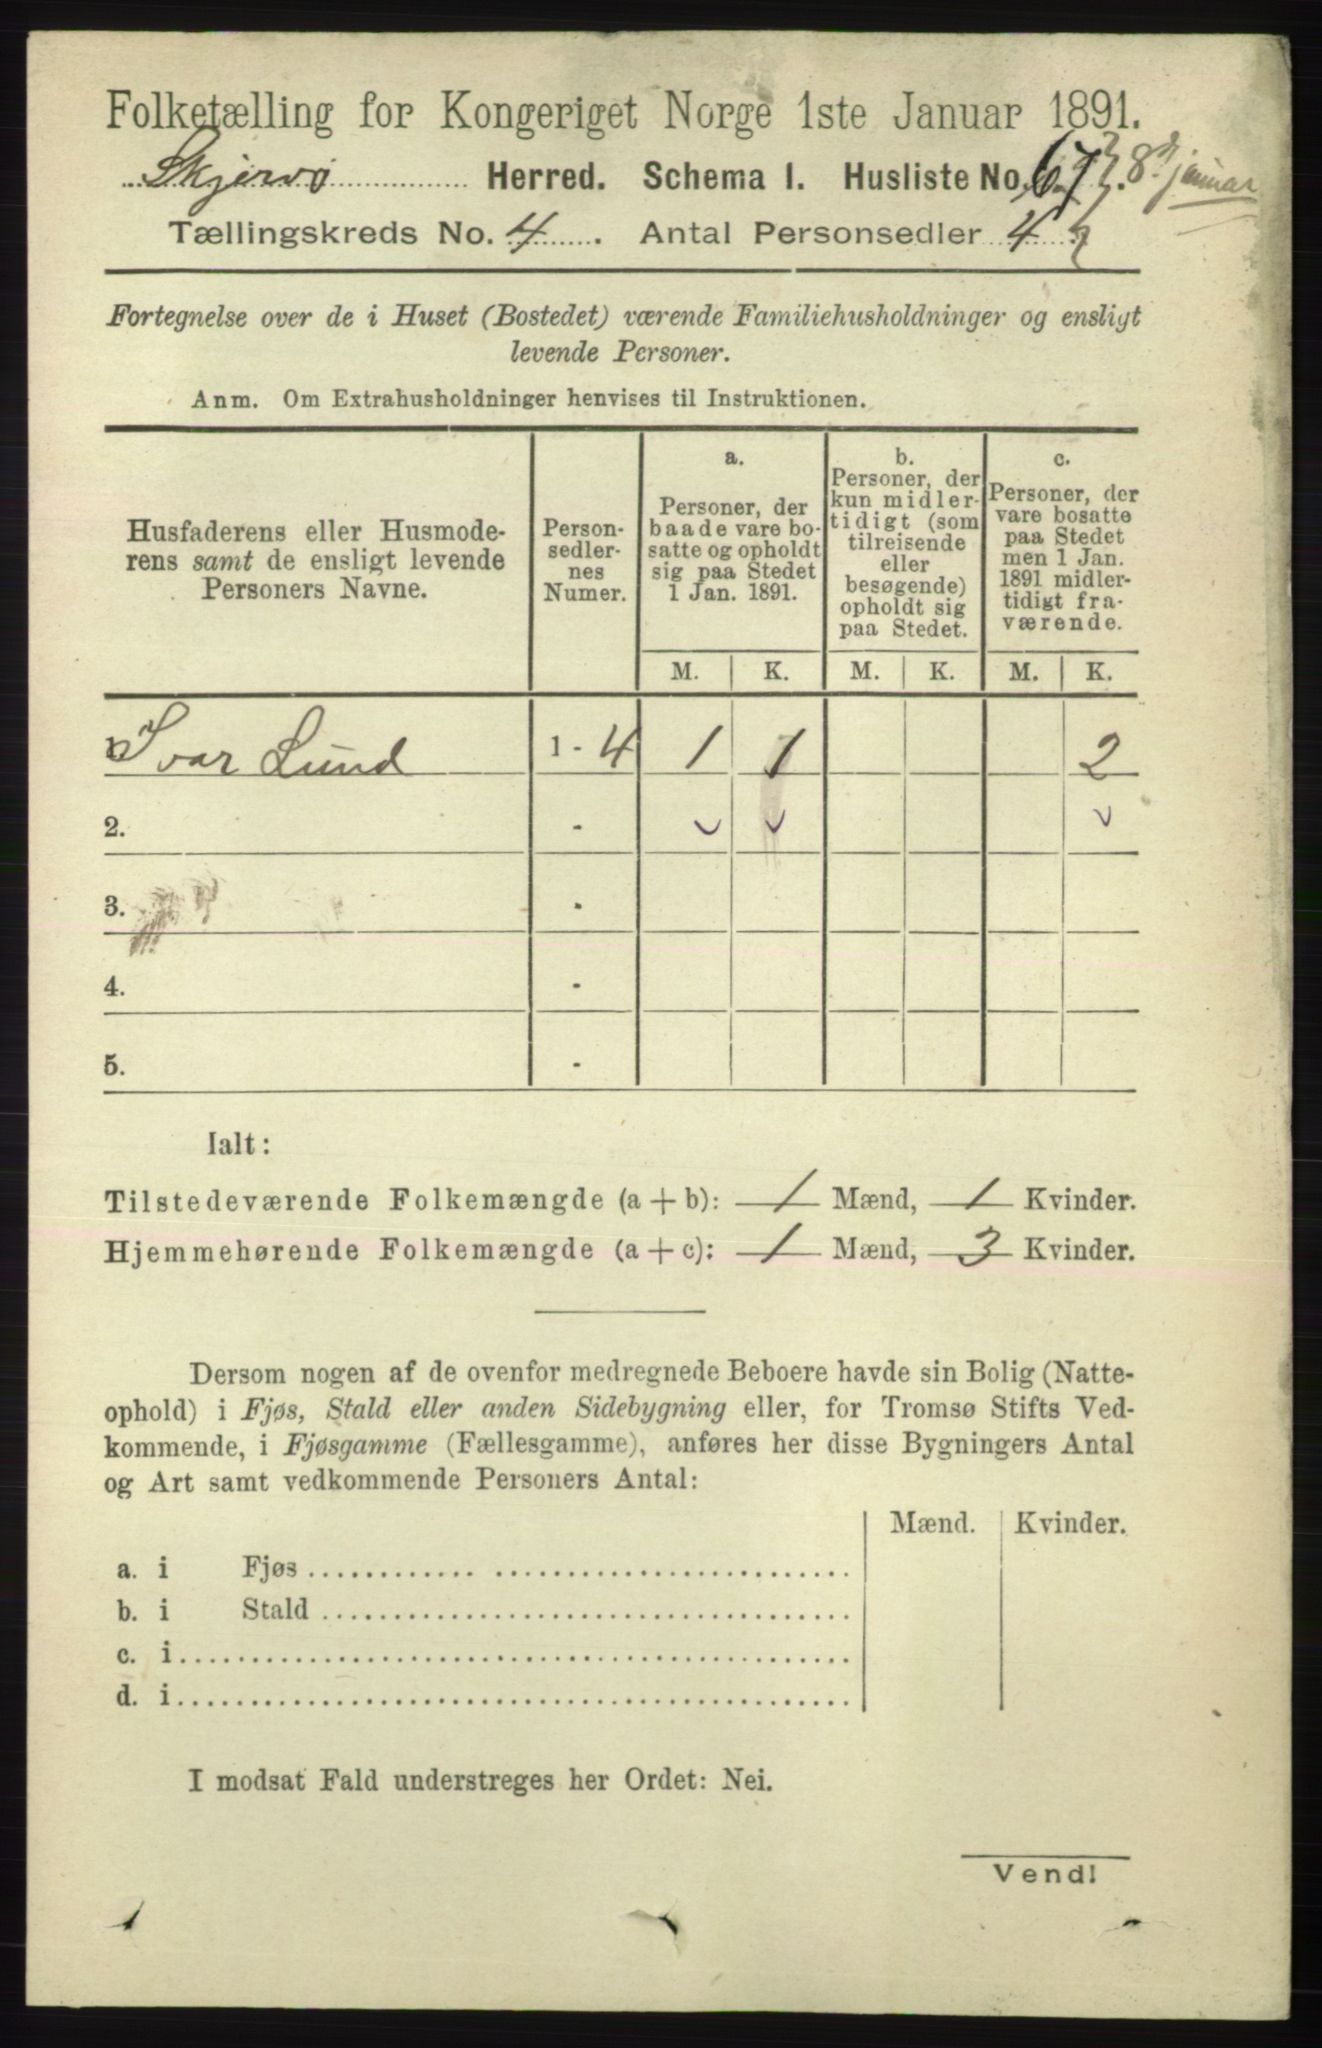 Folketælling for Kongeriget Norge 1ste Januar 1891.
Skjervø Herred. Schema I. Husliste No. 67. 8de januar
Tællingskreds No. 4. Antal Personsedler 4
Fortegnelse over de i Huset (Bostedet) værende Familiehusholdninger og ensligt
levende Personer.
Anm. Om Extrahusholdninger henvises til Instruktionen.
Husfaderens eller Husmode-
rens samt de ensligt levende
Personers Navne.
Person-
sedler-
nes
Numer.
a.
Personer, der
baade vare bo-
satte og opholdt
sig paa Stedet
1 Jan. 1891.
b.
Personer, der
kun midler-
tidigt (som
tilreisende
eller
besøgende)
opholdt sig
paa Stedet.
c.
Personer, der
vare bosatte
paa Stedet
men 1 Jan.
1891 midler-
tidigt fra-
værende.
M. K. M. K. M. K.
Ivar Lund 1 - 4 1 1 2
2. -
3. -
4. -
5. -
Ialt:
Tilstedeværende Folkemængde (a + b): 1 Mænd, 1 Kvinder.
Hjemmehørende Folkemængde (a + c): 1 Mænd, 3 Kvinder.
Dersom nogen af de ovenfor medregnede Beboere havde sin Bolig (Natte-
ophold) i Fjøs, Stald eller anden Sidebygning eller, for Tromsø Stifts Ved-
kommende, i Fjøsgamme (Fællesgamme), anføres her disse Bygningers Antal
og Art samt vedkommende Personers Antal:
Mænd. Kvinder.
a. i Fjøs
b. i Stald
c. i
d. i
I modsat Fald understreges her Ordet: Nei.
Vend!